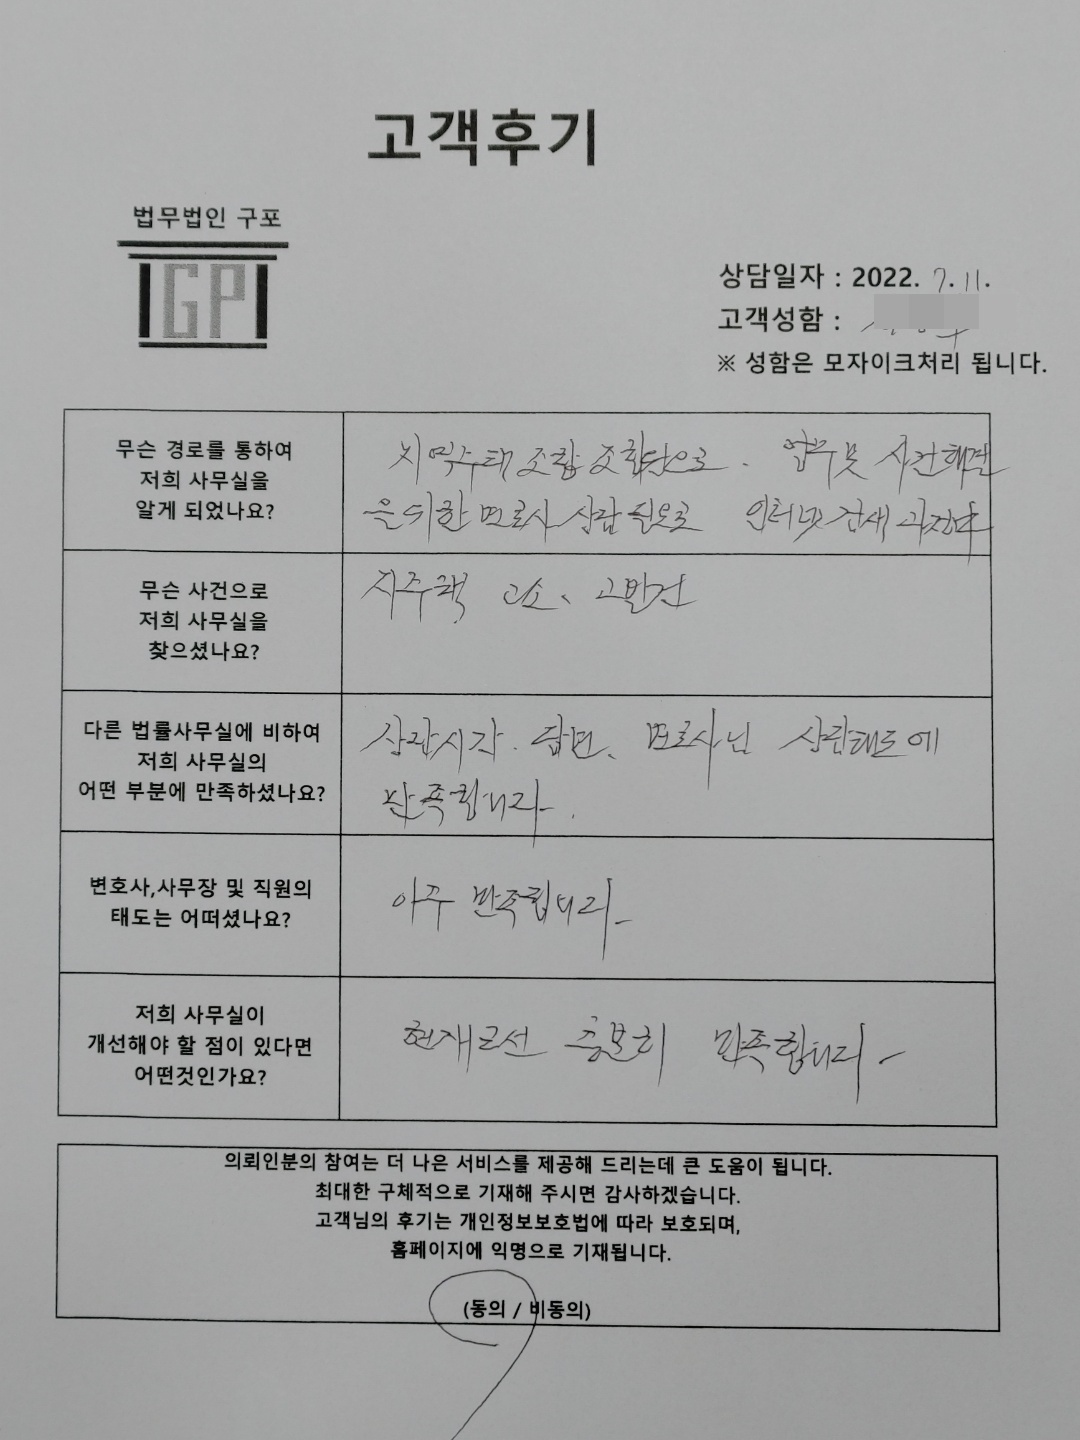 고객후기
법무법인 구포
GP
상담일자 : 2022. 7. 11.
고객성함 :
※ 성함은 모자이크처리 됩니다.
무슨 경로를 통하여
저희 사무실을
알게 되었나요?
지역주택 조합 조합원으로. 업무및 사건해결
을 위한 변호사 상담 필요로 인터넷 검색 과정中
무슨 사건으로
저희 사무실을
찾으셨나요?
지주택 고소、고발건
다른 법률사무실에 비하여
저희 사무실의
어떤 부분에 만족하셨나요?
상담시각. 답변、변호사님 상담태도에
만족합니다.
변호사,사무장 및 직원의
태도는 어떠셨나요?
아주 만족합니다
저희 사무실이
개선해야 할 점이 있다면
어떤것인가요?
현재로선 충분히 만족합니다
의뢰인분의 참여는 더 나은 서비스를 제공해 드리는데 큰 도움이 됩니다.
최대한 구체적으로 기재해 주시면 감사하겠습니다.
고객님의 후기는 개인정보보호법에 따라 보호되며,
홈페이지에 익명으로 기재됩니다.
(동의 / 비동의)